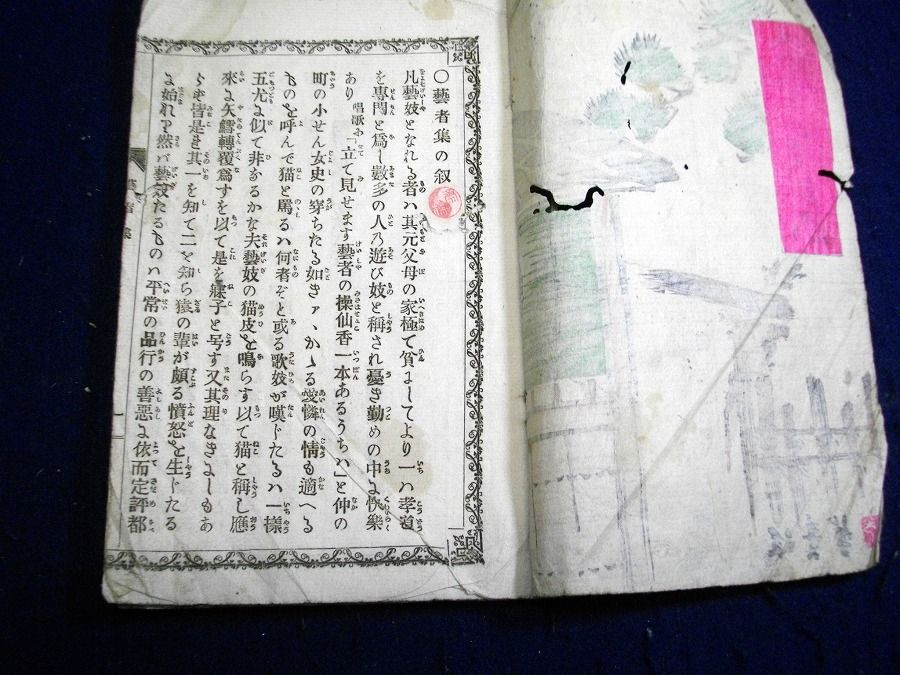 〇藝者集の叙
凡藝妓となれる者ハ其元父母の家極て貧よしてより一ハ孝道
を専門と爲し數多の人乃遊び妓と稱され憂き勤めの中よ快樂
あり 唱歌に「立て見せます藝者の操仙香一本あるうちハ」と仲の
町の小せん女史の穿ちたる如きァヽかゝる愛憐の情も適へる
ものを呼んで猫と罵るハ何者ぞと或る歌妓が嘆じたるハ一樣
五尤よ似て非なるかな夫藝妓の猫皮を鳴らす以て猫と稱し應
來よ矢鱈轉覆爲すを以て是を 子と号す又其理なきよしもあ
らき皆是き其一を知て二を知ら猿の輩が頗る憤怒を生じたる
よ始れり然バ藝妓たるものハ平常の品行の善惡よ依而定評都